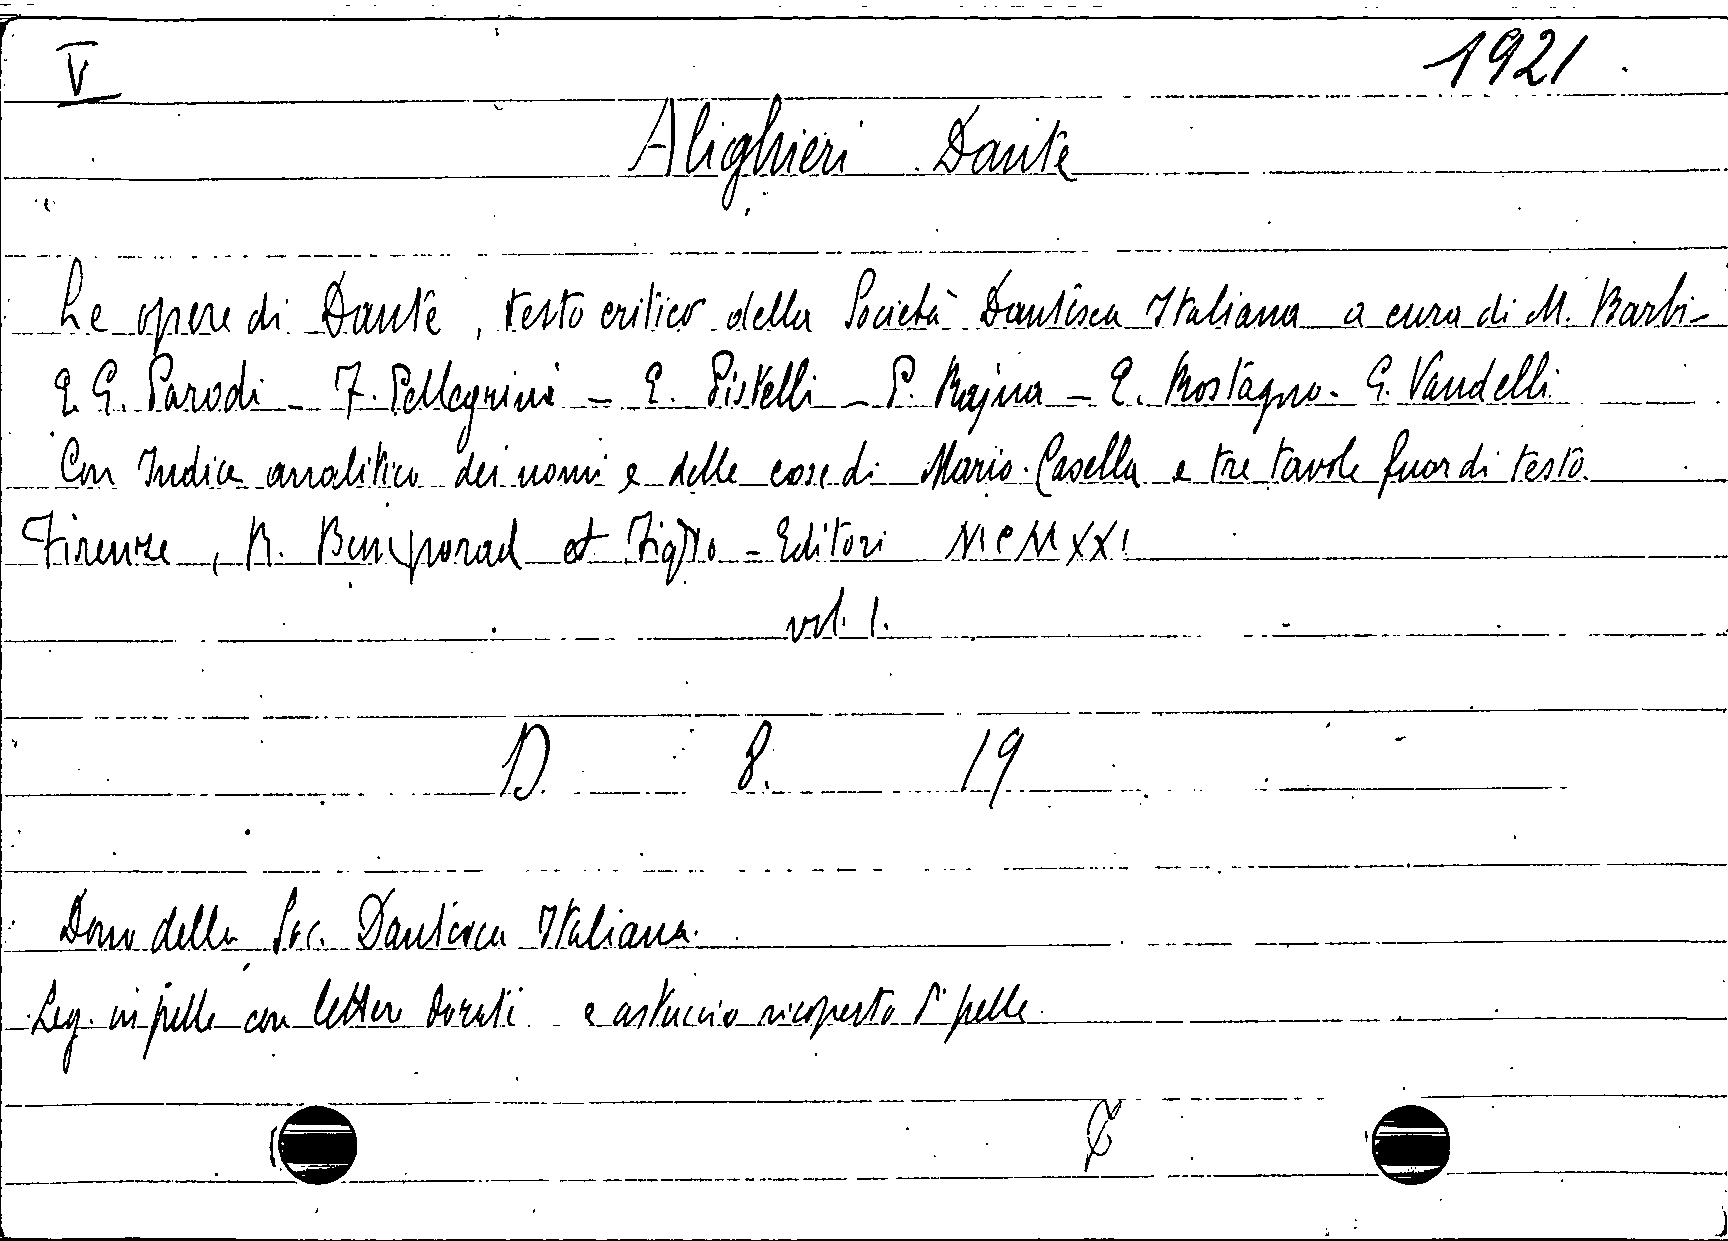 V 1921
Alighieri Dante
Le opere di Dante, testo critico della Società Dantesca Italiana a cura di M. Barbi-
E. G. Parodi - F. Pellegrini - E. Pistelli - P. Rajna - E. Rostagno - G. Vandelli
Con Indice analitico dei nomi e delle cose di Mario Casella e tre tavole fuor di testo.
Firenze, R. Bemporad et Figlio - Editori MCMXXI
vol. 1.
D. 8. 19
Dono della Soc. Dantesca Italiana.
Leg. in pelle con lettere dorate e astuccio ricoperto di pelle